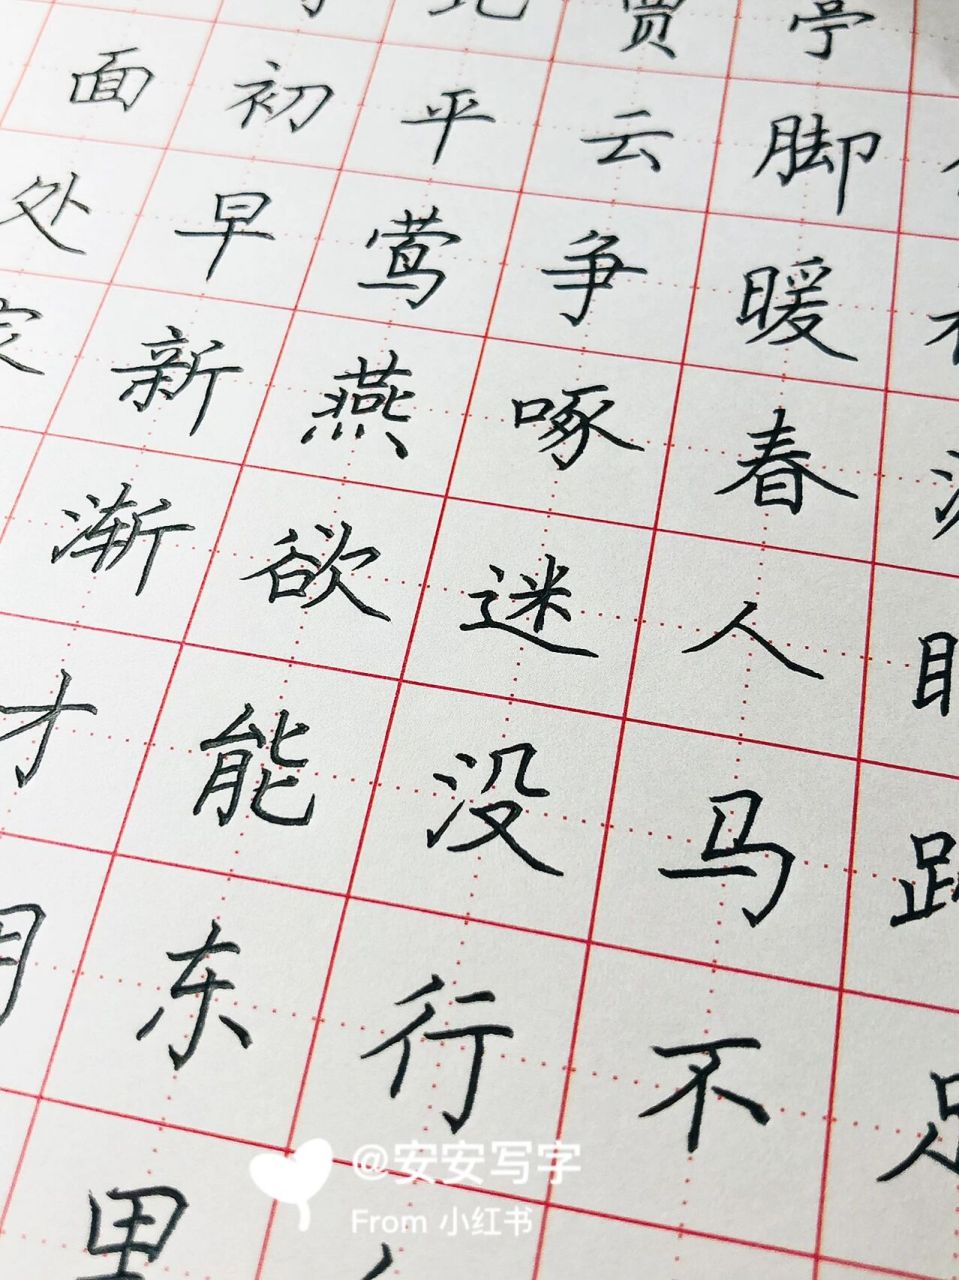 贾亭
面初平云脚
处早莺争暖
新燕啄春
渐欲迷人
才能没马
东行不
里
@安安写字
From 小红书